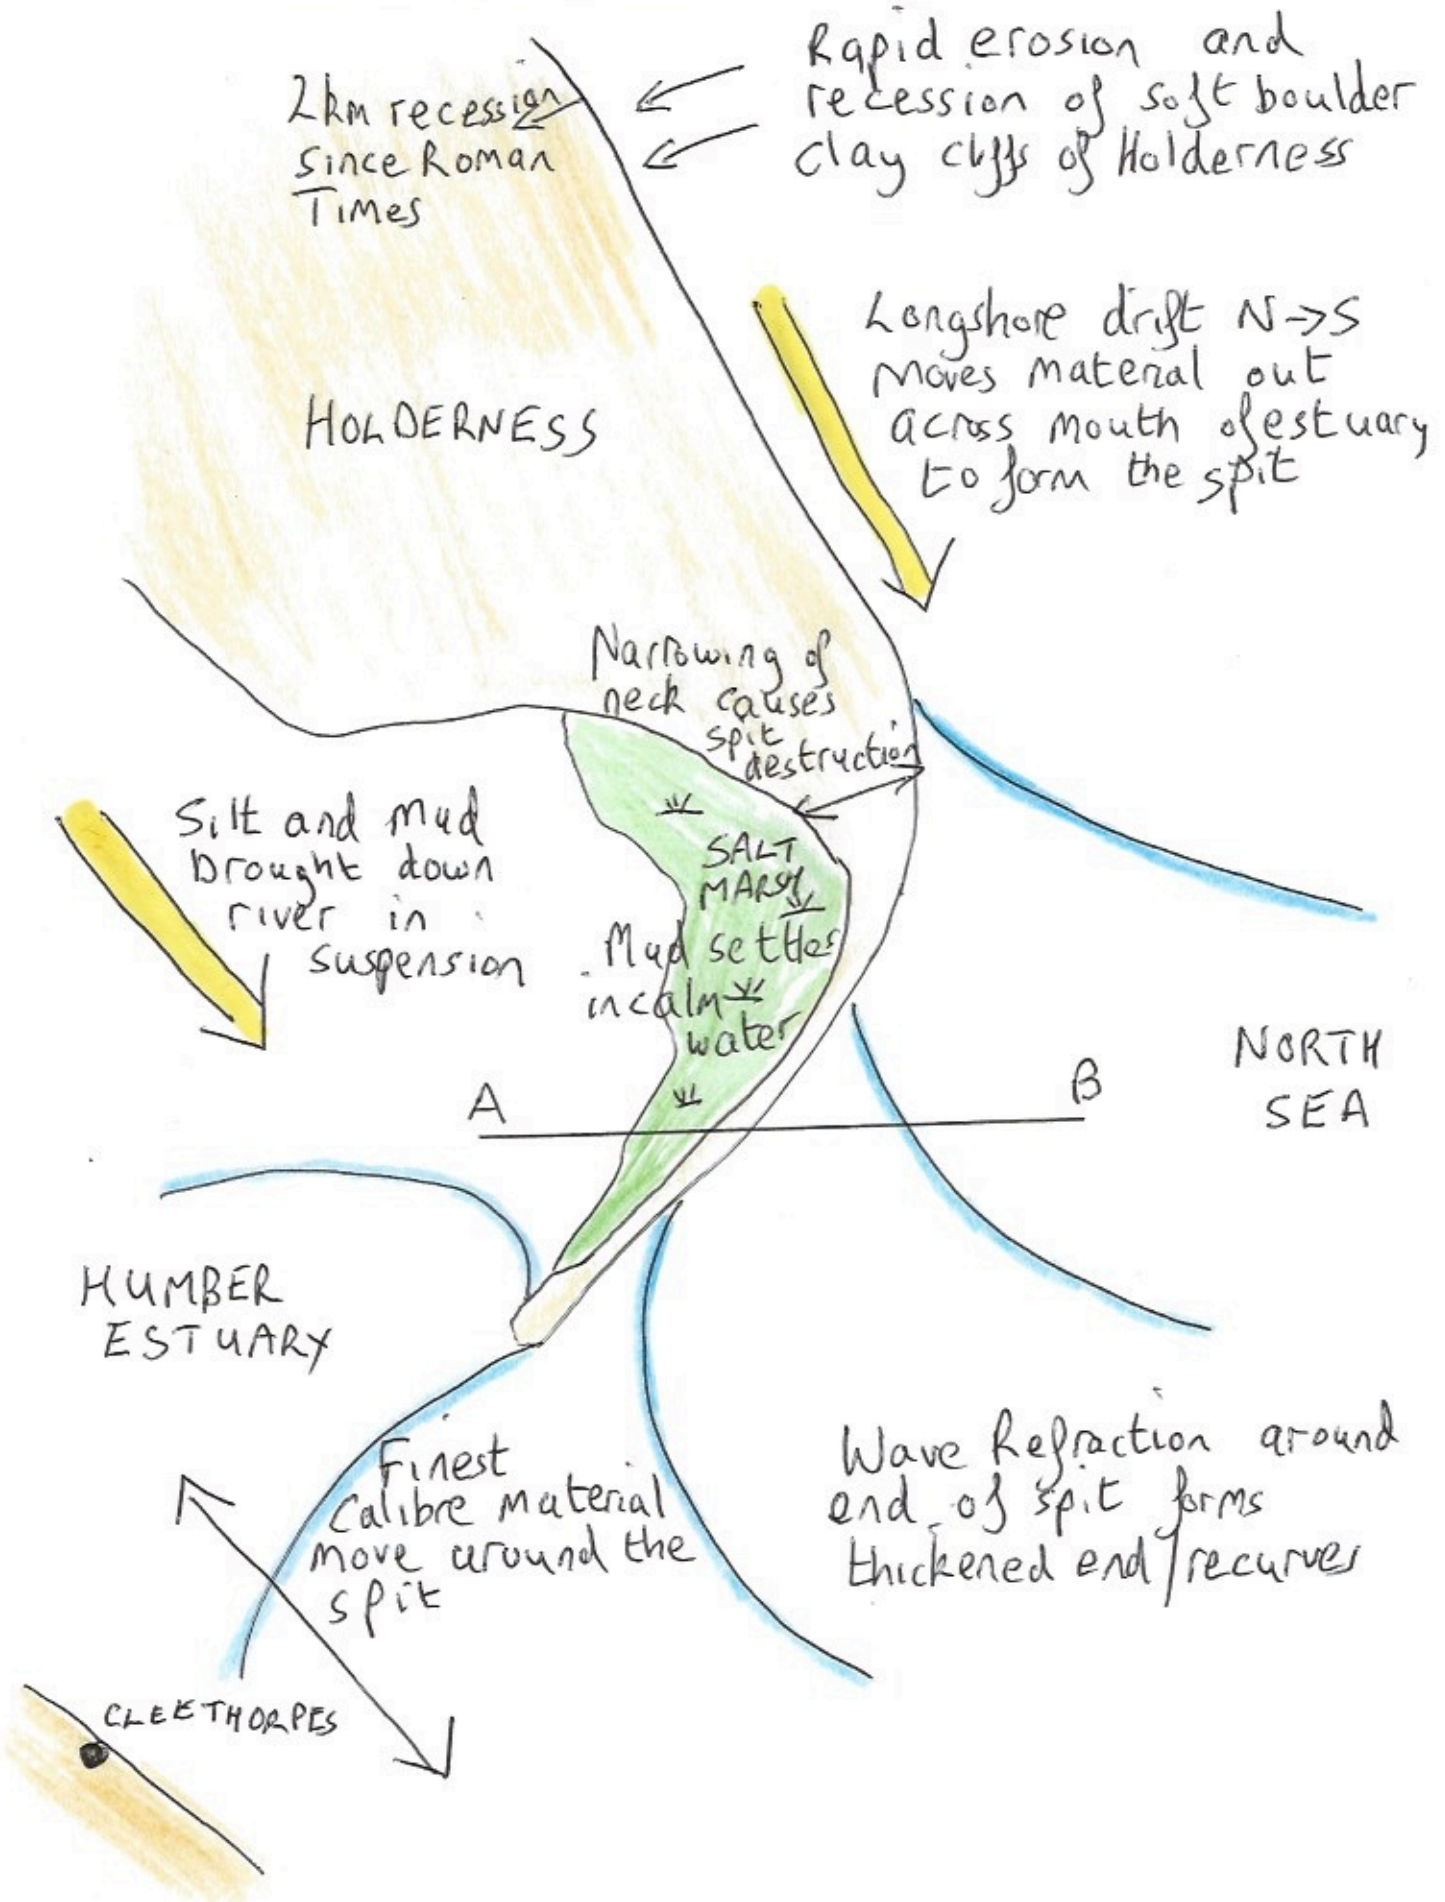 2km recession
since Roman
Times
Rapid erosion and
recession of soft boulder
clay cliffs of Holderness
Longshore drift N→S
moves material out
across mouth of estuary
to form the spit
HOLDERNESS
Narrowing of
neck causes
spit
destruction
Silt and mud
brought down
river in
suspension
SALT
MARSH
Mud settles
in calm
water
NORTH
SEA
A
B
HUMBER
ESTUARY
Finest
calibre material
move around the
spit
Wave Refraction around
end of spit forms
thickened end/recurves
CLEETHORPES